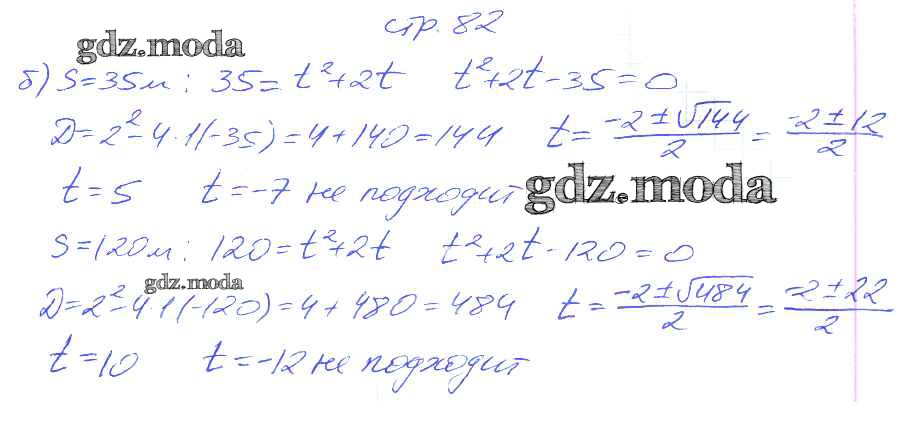 стр. 82
gdz.moda
б) S=35м: 35=t²+2t t²+2t-35=0
D=2²-4·1(-35)=4+140=144 t=(-2±√144)/2=(-2±12)/2
t=5 t=-7 не подходит gdz.moda
S=120м: 120=t²+2t t²+2t-120=0
gdz.moda
D=2²-4·1(-120)=4+480=484 t=(-2±√484)/2=(-2±22)/2
t=10 t=-12 не подходит